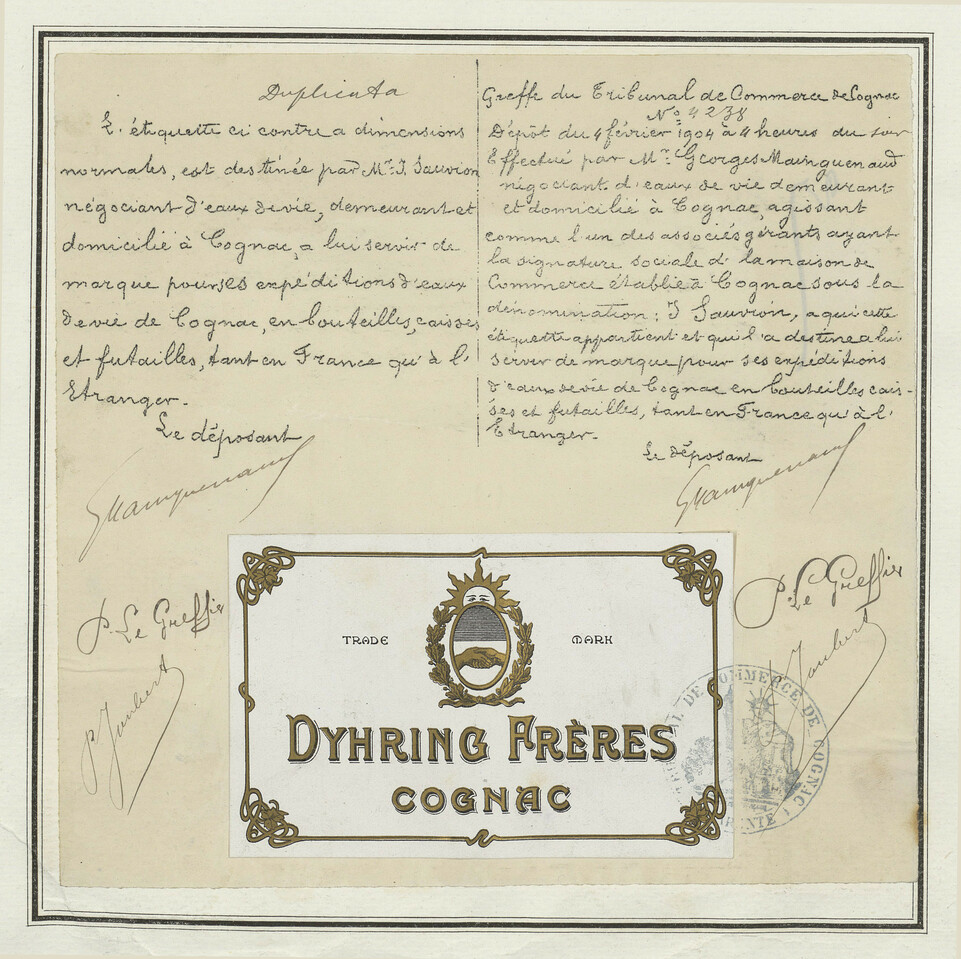 Duplicata
L'étiquette ci contre a dimensions
normales, est destinée par Mr. J. Sauvion
négociant d'eaux de vie, demeurant et
domicilié à Cognac, a lui servir de
marque pour ses expéditions d'eaux
de vie de Cognac, en bouteilles, caisses
et futailles, tant en France qu'à l'
Etranger.
Le déposant
GMainguenaud
P. Le Greffier
P Joubert
Greffe du Tribunal de Commerce de Cognac
No. 4238
Dépôt du 4 février 1904 à 4 heures du soir
Effectué par Mr. Georges Mainguenaud
négociant d'eaux de vie demeurant
et domicilié à Cognac, agissant
comme l'un des associés gérants ayant
la signature sociale d' la maison de
Commerce établie à Cognac sous la
dénomination: J Sauvion, a qui cette
étiquette appartient et qu'il a destinée a lui
server de marque pour ses expéditions
d'eaux de vie de Cognac en bouteilles cais-
ses et futailles, tant en France qu'à l'
Etranger.
Le déposant
GMainguenaud
P. Le Greffier
P Joubert
TRADE MARK
DYHRING FRÈRES
COGNAC
TRIBUNAL DE COMMERCE DE COGNAC
CHARENTE